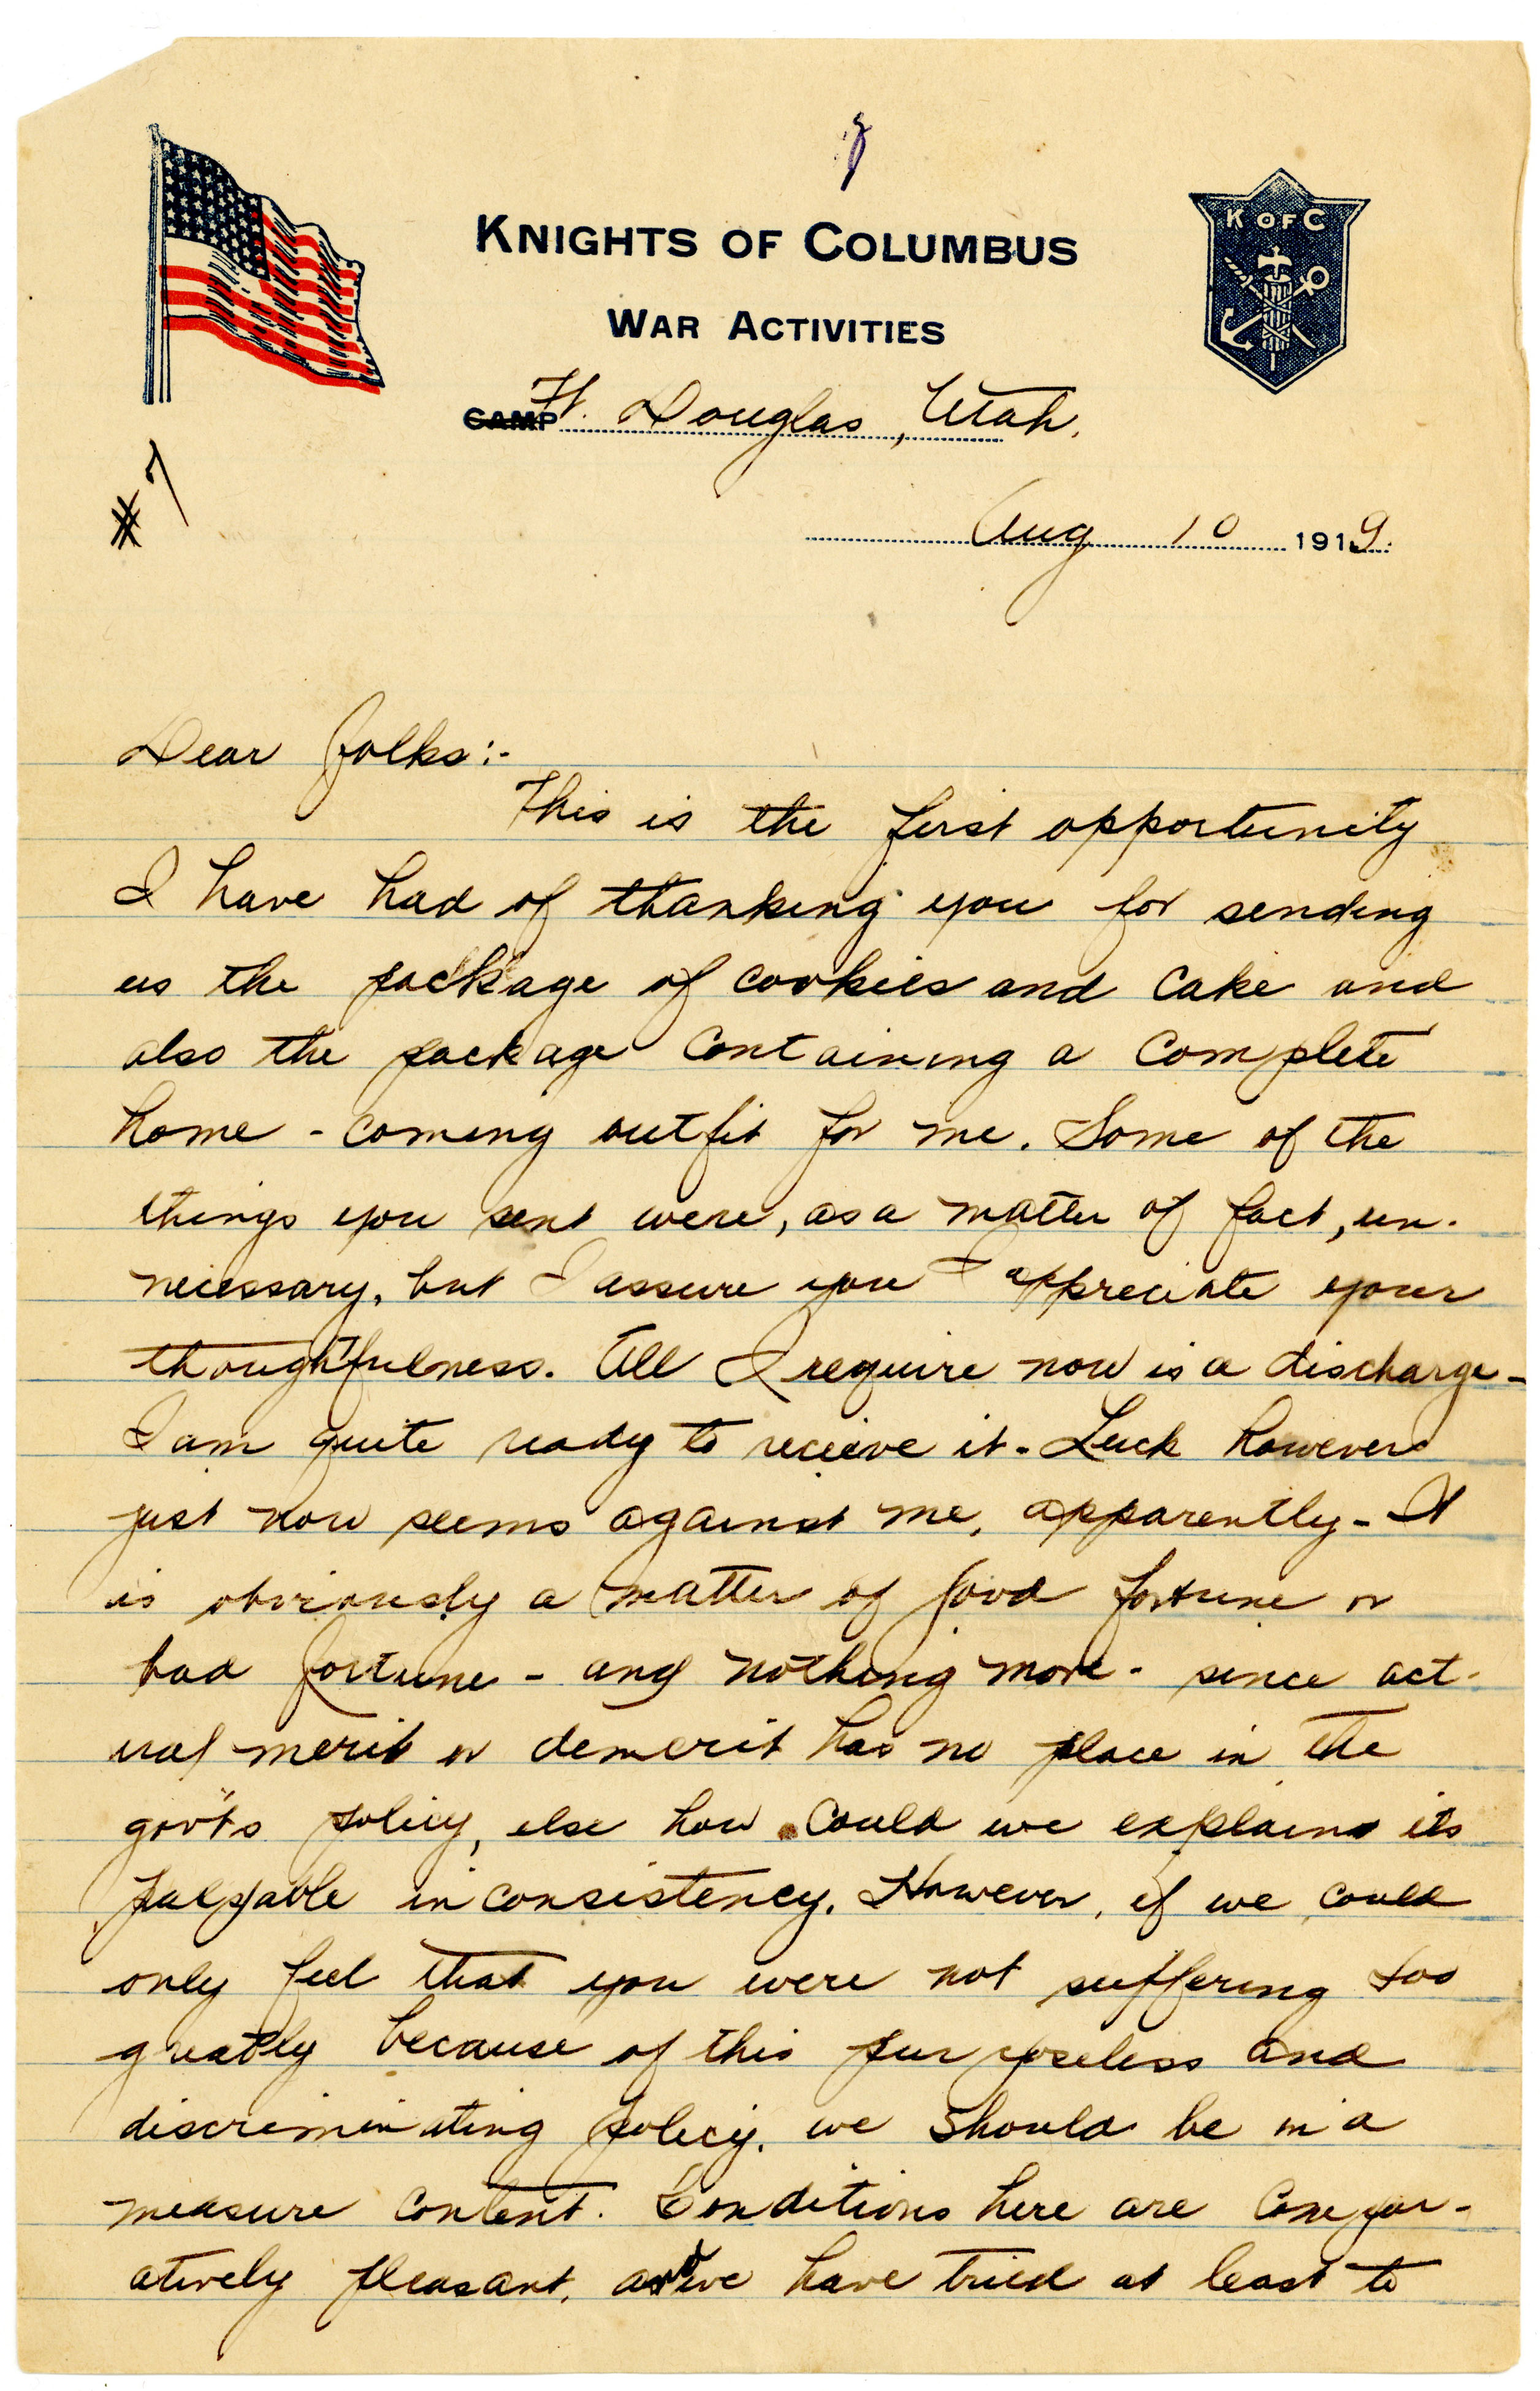 KNIGHTS OF COLUMBUS
K OF C
WAR ACTIVITIES
CAMP Ft. Douglas, Utah.
#7
Aug 10 1919.
Dear folks:-
This is the first opportunity
I have had of thanking you for sending
us the package of cookies and cake and
also the package containing a complete
home-coming outfit for me. Some of the
things you sent were, as a matter of fact, un-
necessary, but I assure you I appreciate your
thoughtfulness. All I require now is a discharge -
I am quite ready to recieve it. Luck however
just now seems against me, apparently - It
is obviously a matter of good fortune or
bad fortune - and nothing more - since act-
ual merit or demerit has no place in the
gov't's policy, else how could we explain its
palpable inconsistency. However, if we could
only feel that you were not suffering too
greatly because of this purposeless and
discriminating policy, we should be in a
measure content. Conditions here are compar-
atively pleasant, and we have tried at least to